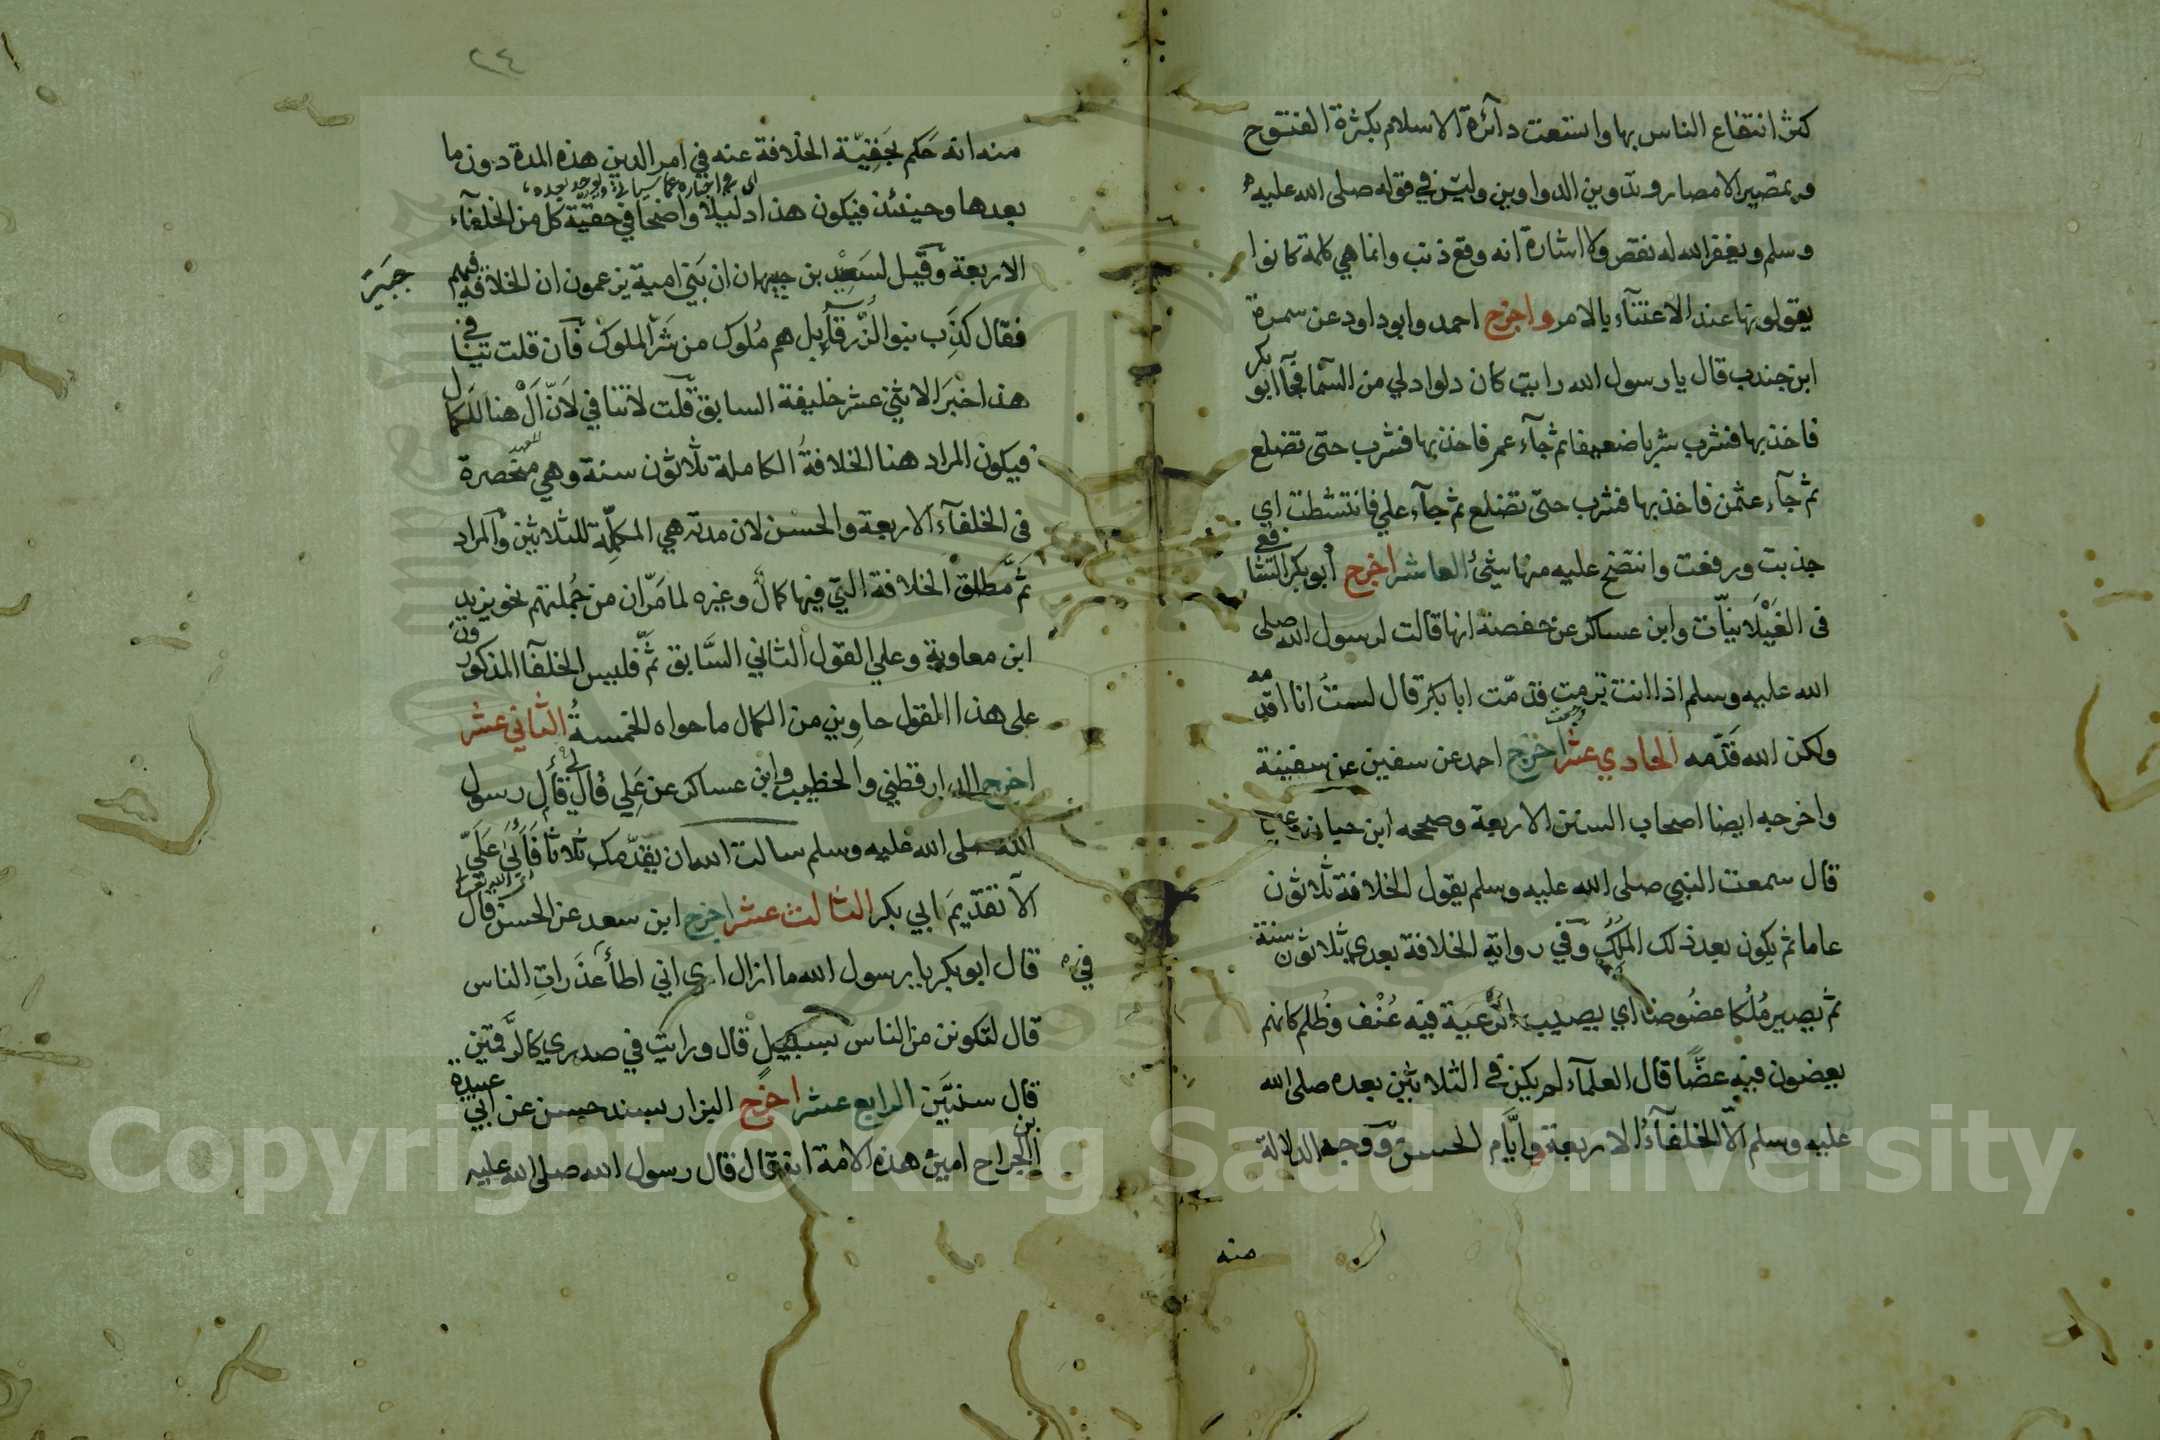 كثر انتفاع الناس بها واتسعت دآئرة الاسلام بكثرة الفتوح
وبمتصير الامصار وتدوين الدواوين وليس في قوله صلى الله عليه
وسلم ويغفر الله له نقص ولا اشارة انه وقع ذنب وانما هي كلمة كانوا
يقولونها عند الاعتنآء بالامر واخرج احمد وابوداود عن سمرة
ابن جندب قال يا رسول الله رايت كان دلوا دلي من السما فجآ ابو بكر
فاخذ بها فشرب شربا ضعيفا ثم جآء عمر فاخذ بها فشرب حتى تضلع
ثم جآء عثمن فاخذ بها فشرب حتى تضلع ثم جآء علي فانتشطت اي
جذبت ورفعت وانتضح عليه منها شيئ العاشر اخرج أبو بكر الشافعي
في الغَيْلَانيّات وابن عساكر عن حفصة انها قالت لرسول الله صلى
الله عليه وسلم اذا انت مرضت قدمّت ابا بكر قال لستُ انا اقدمه
ولكن الله قَدّمه الحادي عشر اخرج احمد عن سفين عن سفينة
واخرجه ايضا اصحاب السنن الاربعة وصححه ابن حبان
قال سمعت النبي صلى الله عليه وسلم يقول الخلافة ثلاثون
عاما ثم يكون بعد ذلك المُلك وفي رواية الخلافة بعدي ثلاثون سنة
ثم يصير مُلكا عضُوضا اي يصيب الرعية فيه عُنْف وظُلم كانهم
يعضون فيه عضًّا قال العلمآء لم يكن في الثلاثين بعده صلى الله
عليه وسلم الّا الخلفآءُ الاربعة وايَّام الحسن ووجه الدلالة
منه
٢٤
منه انه حَكم بحَقِيّة الخلافة عنه في امر الدين هذه المدة دون ما
بعدها وحينئذ فيكون هذا دليلا واضحا في حقيّة كل من الخلفآء
الاربعة وقيل لسَعِيْد بن جبهان ان بَنِي امية يزعمون ان الخلافة فيهم
جبَير
فقال كذَب بنوا الزرقآء بل هم مُلوك من شَرّ الملوك فان قلت ينافي
هذا خبَر الاثني عشر خليفة السابق قلت لا تنافي لانّ اَلْ هنا للكمال
فيكون المراد هنا الخلافة الكاملة ثلاثون سنة وهي منحصرة
في الخلفآء الاربعة والحسن لان مدته هي المكمّلة للثلاثين والمراد
ثمّ مطلق الخلافة التي فيها كمال وغيره لما مرّ ان من جُملتهم نحو يزيد
ابن معاوية وعلى القول الثاني السَّابق ثمَّ فليس الخلفآ المذكورون
على هذا القول حاوين من الكمال ما حواه الخمسةُ الثاني عشر
اخرج الدارقطني والخطيب وابن عساكر عن عَلِي قال قال لي رسول
الله صلى الله عليه وسلم سالت الله ان يقدّمك ثلاثا فَأَبَى عَلَيَّ
الا تقديمَ ابي بكر الثالث عشر اخرج ابن سعد عن الحسن قال
قال ابو بكر يا رسول الله ما ازال اري اني اطأ عَذَراتِ الناس
قال لتكونن من الناس بسبيلٍ قال ورايت في صدري كالرَّقمتين
قال سنتيَن الرابع عشر اخرج البزار بسند حسن عن ابي عبيدة
بن الجراح امين هذه الامة انه قال قال رسول الله صلى الله عليه
Copyright © King Saud University